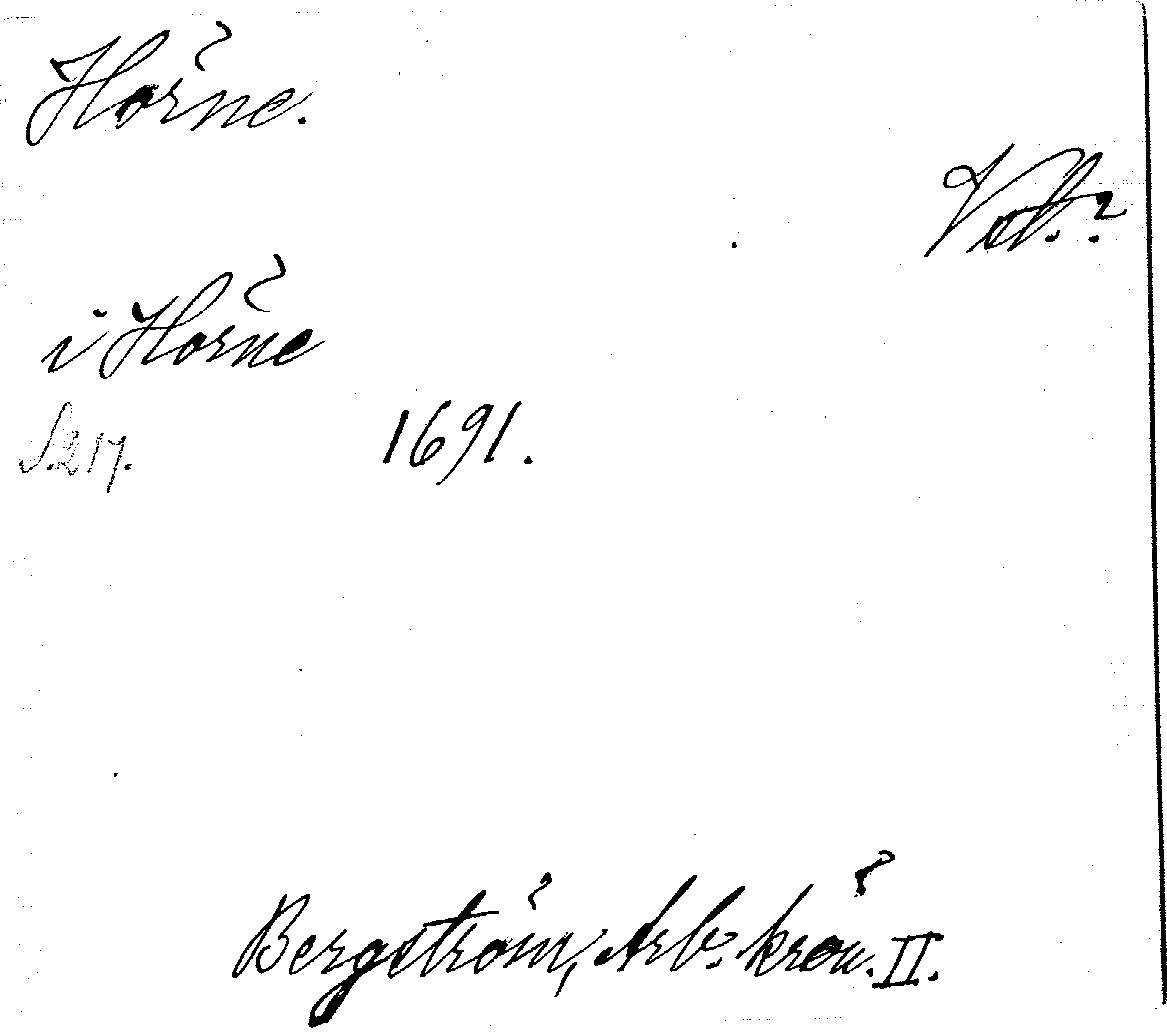 Hörne.
Vtl.?
i Hörne
S.217. 1691.
Bergström, Arb. krön. II.